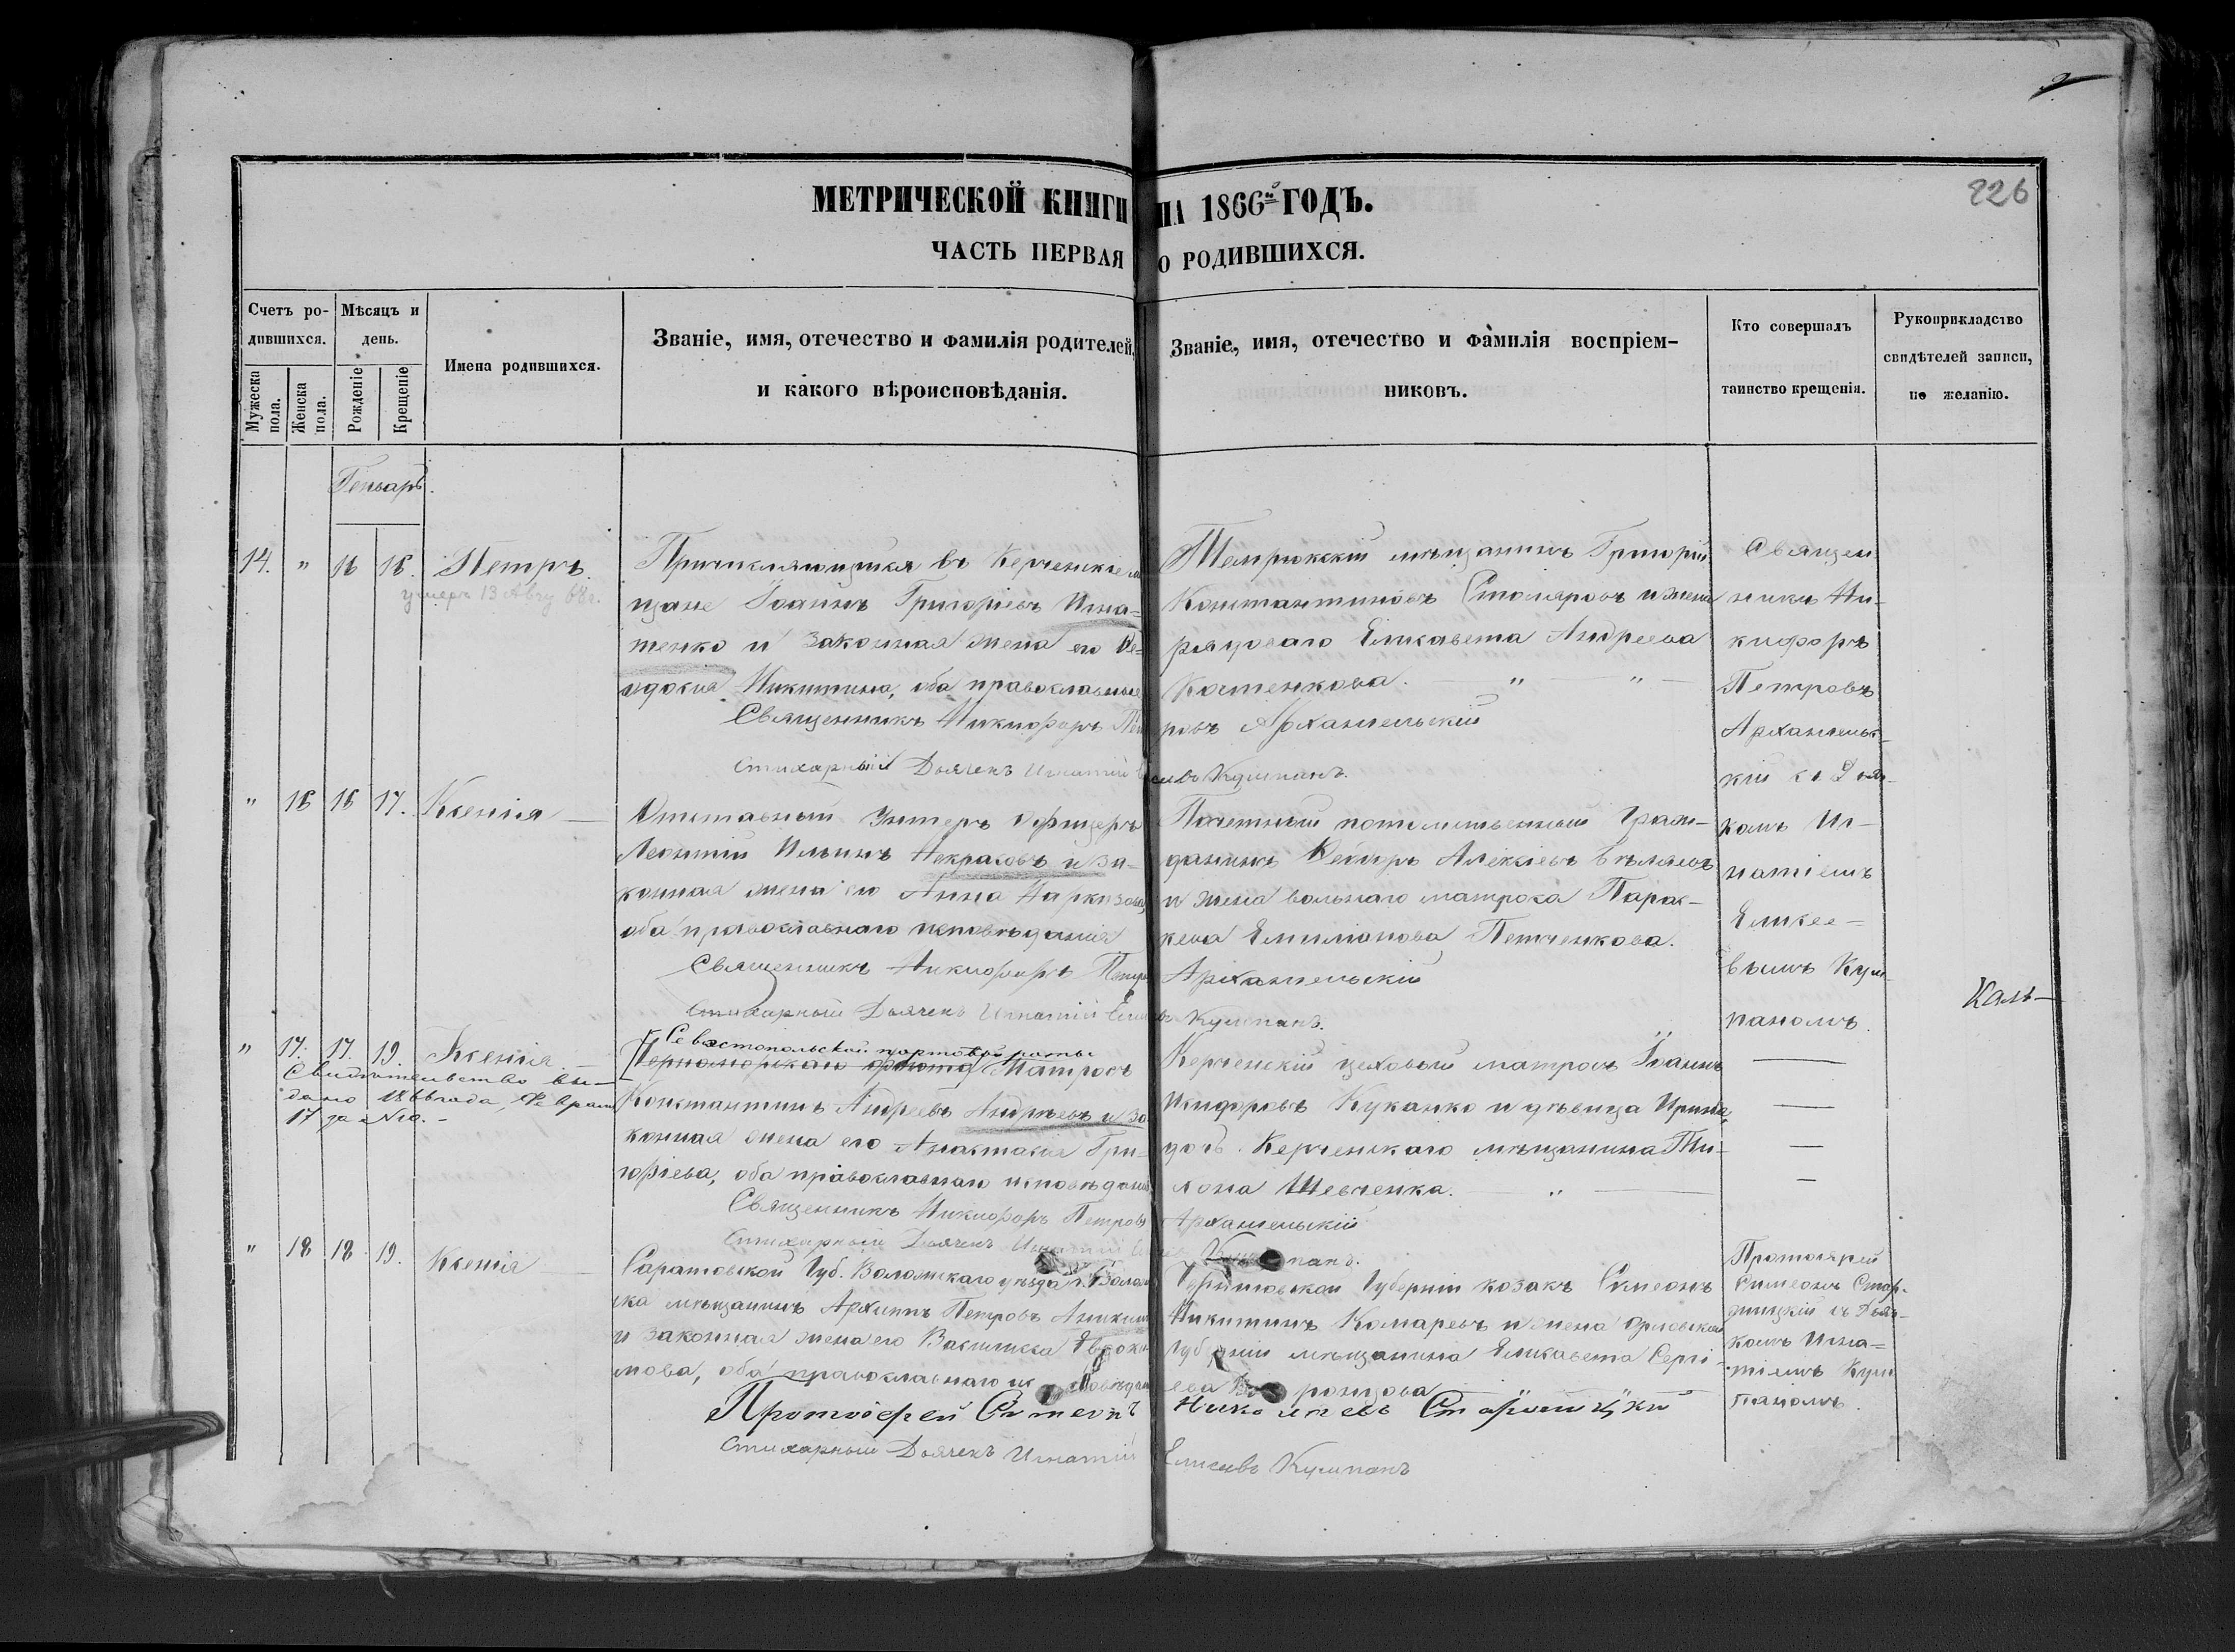 226
МЕТРИЧЕСКОЙ КНИГИ НА 1866й ГОДЪ.
ЧАСТЬ ПЕРВАЯ О РОДИВШИХСЯ.
Счетъ ро-
дившихся.
Мужеска пола.
Женска пола.
Мѣсяцъ и
день.
Рожденіе
Крещеніе
Имена родившихся.
Званіе, имя, отечество и фамилія родителей,
и какого вѣроисповѣданія.
Званіе, имя, отечество и фамилія воспріем-
никовъ.
Кто совершалъ
таинство крещенія.
Рукоприкладство
свидѣтелей записи,
по желанію.
Генварь.
14. " 16 16. Петръ.
умеръ 13 Авгу 68г.
Причисляющійся въ Керченскіе м
щане Іоаннъ Григоріевъ Игна-
тенко и законная жена его Ев-
докія Никитина, оба православные
Священникъ Никифоръ Пет
ровъ Архангельскій
Стихарный Дьячекъ Игнатій Елисеевъ Кулипанъ.
Темрюкскій мѣщанинъ Григорій
Константиновъ Столяровъ и жена
рядоваго Елисавета Андреева
Костенкова. " "
Священ
никъ Ни-
кифоръ
Петровъ
Архангельс-
кій съ Дьяч-
комъ Иг-
натіемъ
Елисее-
вымъ Кули-
паномъ.
" 16 16 17. Ксенія
Отставный Унтеръ Офицеръ
Леонтій Ильинъ Некрасовъ и за-
конная жена его Анна Наркизова,
оба православнаго исповѣданія
Священникъ Никифоръ Петров
Архангельскій
Стихарный Дьячекъ Игнатій Елисеевъ Кулипанъ.
Почетный потомственный Граж-
данинъ Алексіевъ Бѣляевъ
и жена вольнаго матроса Парас-
кева Емиліанова Петченкова.
Каль-
" 17. 17. 19. Ксенія
Свидѣтельство вы-
дано 1866 года, Феврал
17 за №
Севастопольской портовой роты
Черноморскаго флота Матросъ
Константинъ Андреевъ Андреевъ и за
конная жена его Анастасія Гри-
горіева, оба православнаго исповѣданія,
Священникъ Никифоръ Петровъ
Архангельскій
Стихарный Дьячекъ Игнатій
Керченскій цеховый матросъ Іоаннъ
Никифоровъ Куканко и дѣвица Ирина,
дочь Керченскаго мѣщанина Ти-
хона Шевченка. "
" 18 18 19. Ксенія
Саратовской Губ. Воломскаго уѣзда г. Волом
ска мѣщанинъ Архипъ Петровъ Аникин
и законная жена его Василисса Евдоки
мова, оба православнаго исповѣдан
Протоіерей Симеонъ Николаевъ Старицкій
Стихарный Дьячекъ Игнатій Елисеевъ Кулипанъ
Губерніи козакъ Симеонъ
Никитинъ Комаревъ и жена Орловской
Губерніи мѣщанина Елисавета Сергі-
ева
Протоіерей
Симеонъ Стар-
ицкій съ Дьяч-
комъ Игна-
тіемъ Кули
паномъ.